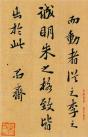 而動者從之季之
誠明朱之格致皆
出於此
石齋